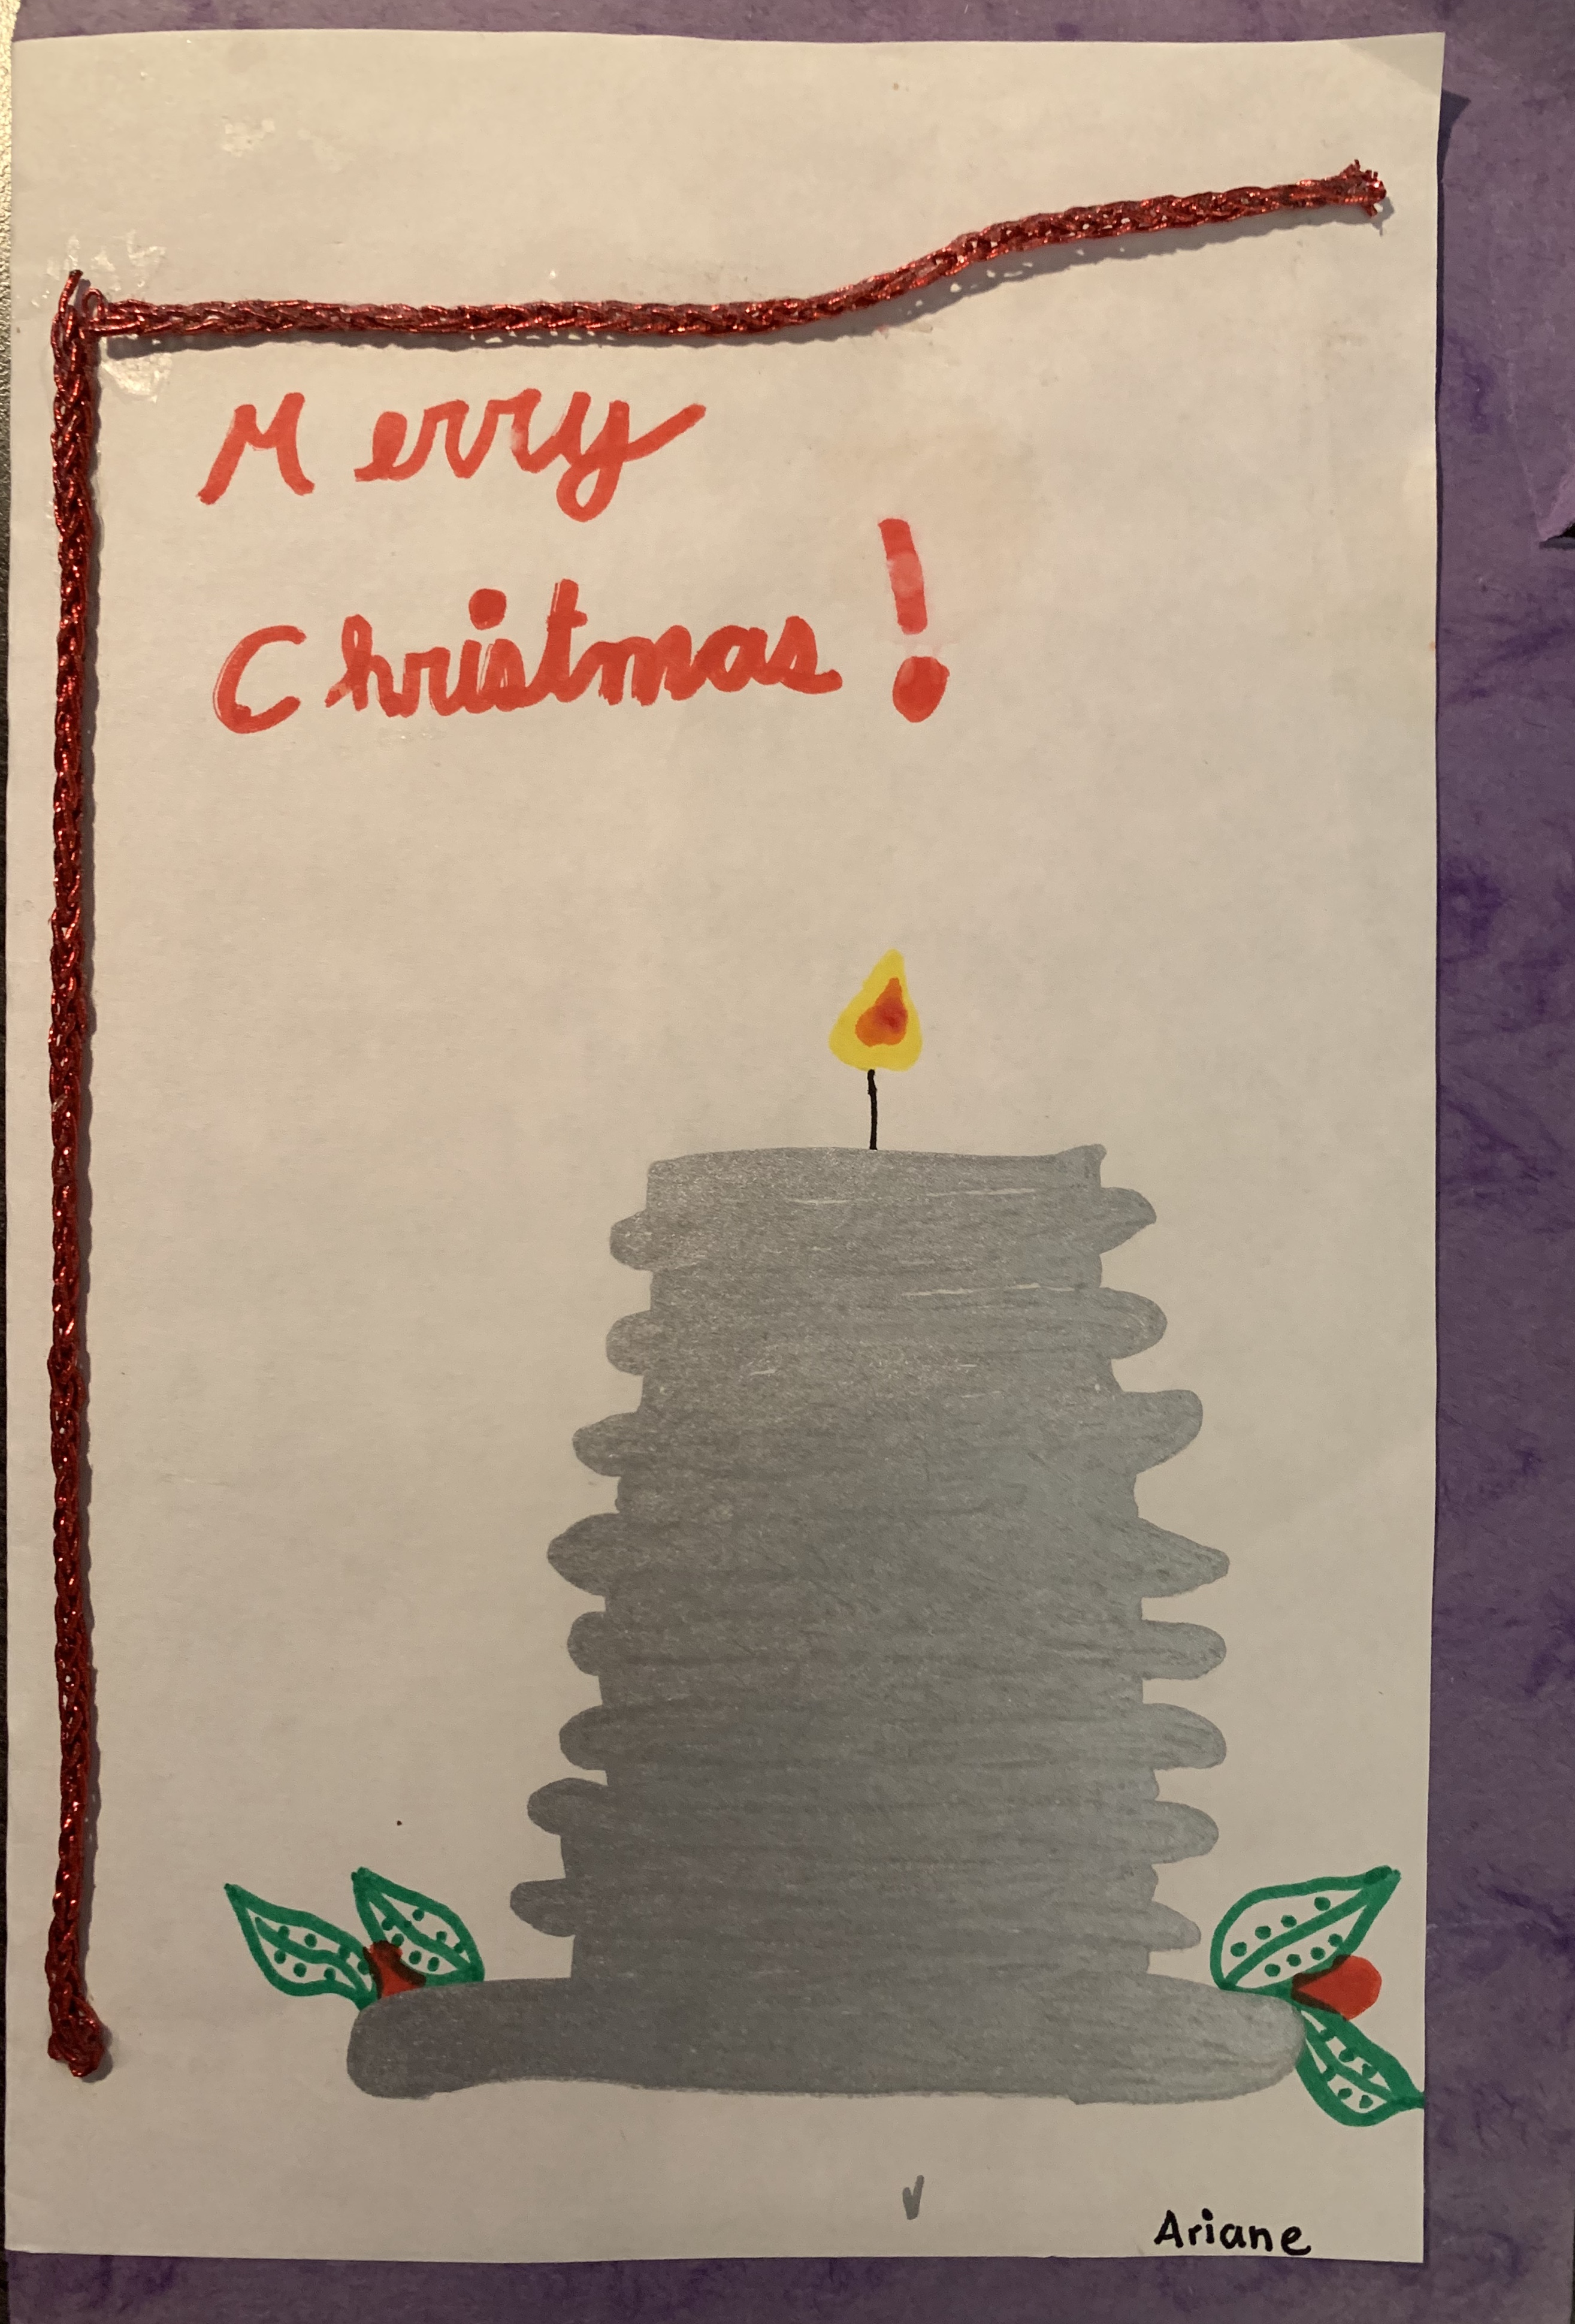 Merry
Christmas!
Ariane